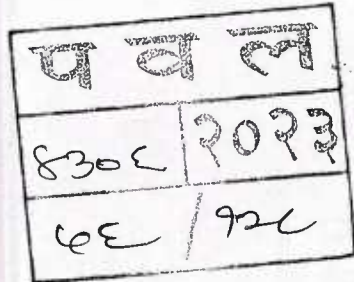 प व ल
४३०६ २०२३
५६ / १२८